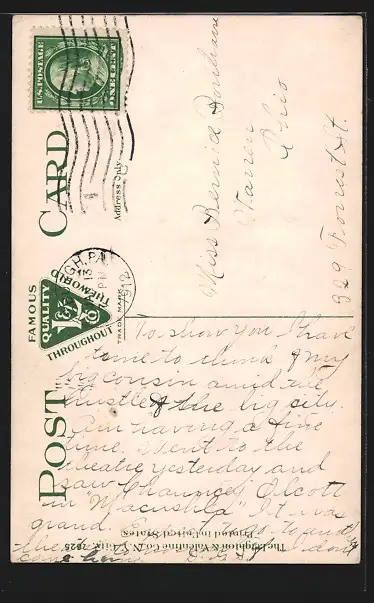 U.S.POSTAGE
ONE CENT
POST CARD
Address Only
FAMOUS
QUALITY
THROUGHOUT
THE WORLD
TRADE MARK
GH, PA
13
PM
1912
Miss Bernice Bonham
Warren
Ohio
329 Forrest St.
To show you I have
time to think of my
big cousin amid the
hustle of the big city.
Am having a fine
time. Went to the
theatre yesterday and
saw Chauncey Olcott
in "Macushla" It was
grand.
to go to
the
I don't
come home
The Leighton & Valentine Co. N.Y. City.
Printed in United States